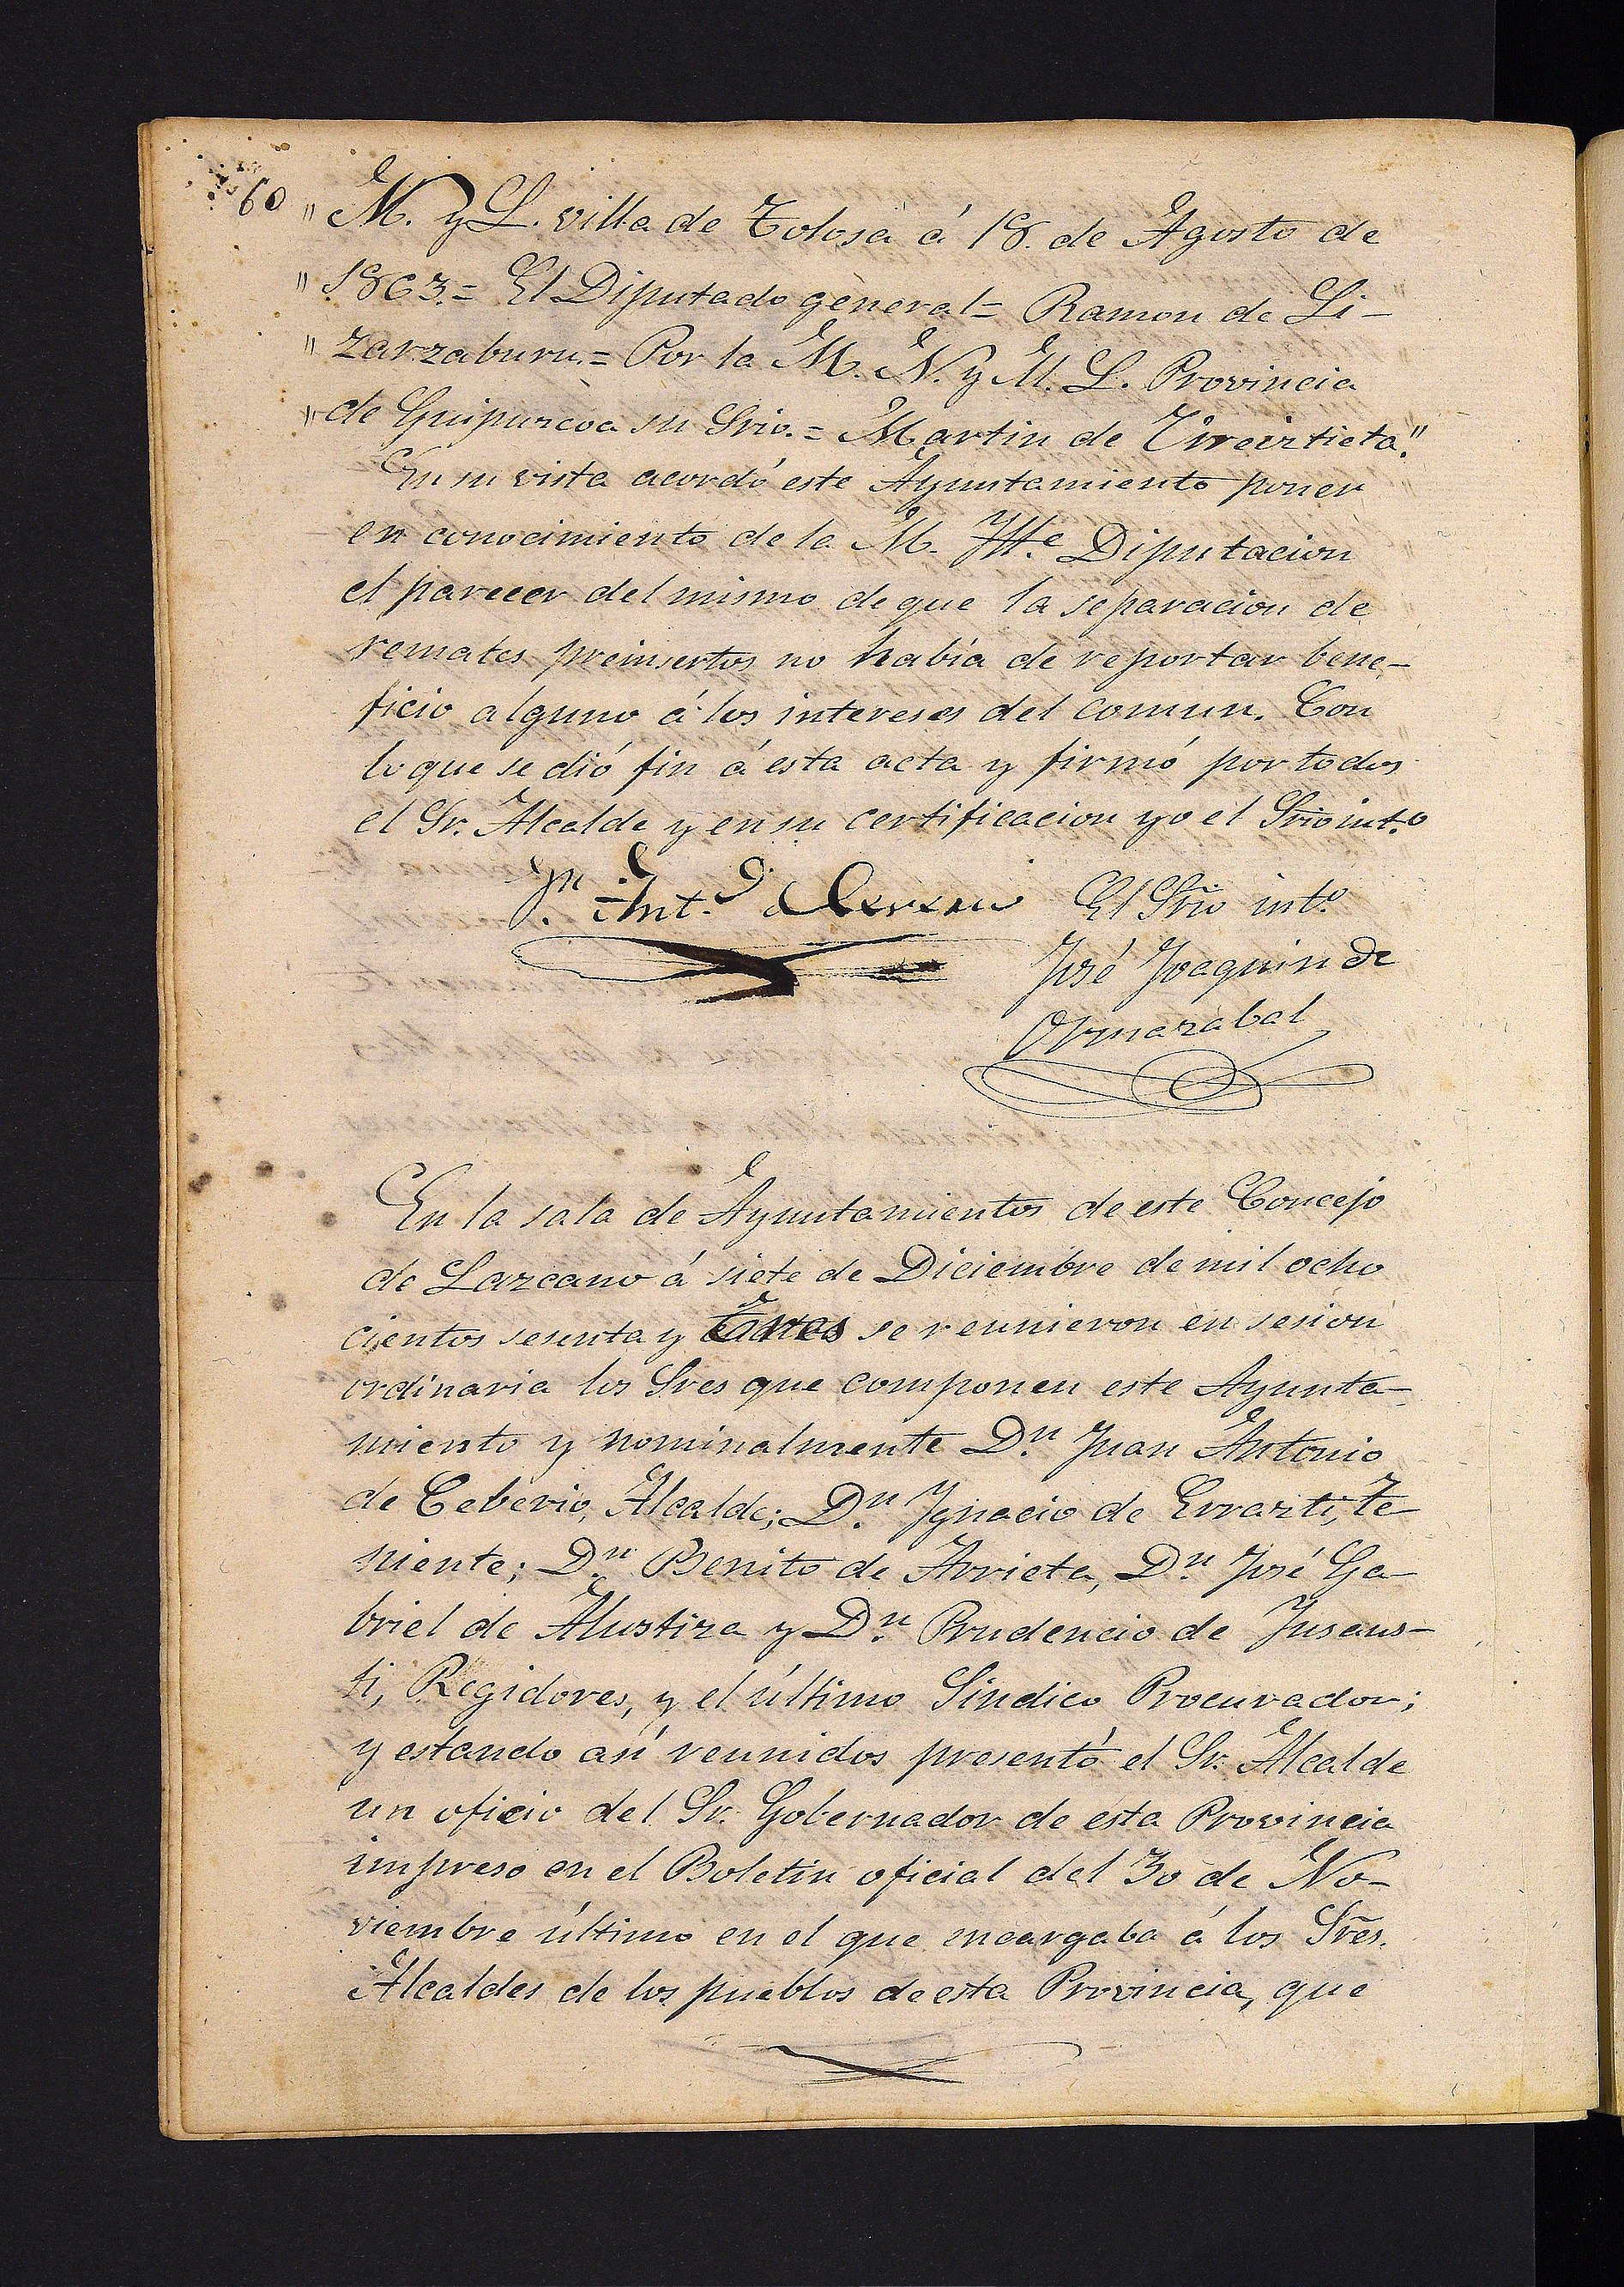 60
" M. y L. villa de Tolosa á 18. de Agosto de
" 1863.= El Diputado general= Ramon de Li-
" zarzaburu.= Por la M. N. y M. L. Provincia
" de Guipuzcoa su Srio.= Martin de Urreiztieta."
En su vista acordó este Ayuntamiento poner
en conocimiento de la M. Ylle. Diputacion
el parecer del mismo de que la separacion de
remates preinsertos no había de reportar bene-
ficio alguno á los intereses del comun. Con
lo que se dió fin á esta acta y firmó por todos
el Sr. Alcalde y en su certificacion yo el Srio int.o
Jn. Ant.o de Ceverio El Srio int.o
José Joaquin de
Ormazabal
En la sala de Ayuntamientos de este Concejo
de Lazcano á siete de Diciembre de mil ocho
cientos sesenta y tres se reunieron en sesion
ordinaria los Sres que componen este Ayunta-
miento y nominalmente D.n Juan Antonio
de Ceberio, Alcalde; D.n Ygnacio de Errazti, te-
niente; D.n Benito de Arrieta, D.n José Ga-
briel de Alustiza y D.n Prudencio de Jusaus-
ti, Regidores, y el último Sindico Procurador;
y estando así reunidos presentó el Sr. Alcalde
un oficio del Sr. Gobernador de esta Provincia
impreso en el Boletin oficial del 30 de No-
viembre último en el que encargaba á los Sres.
Alcaldes de los pueblos de esta Provincia, que